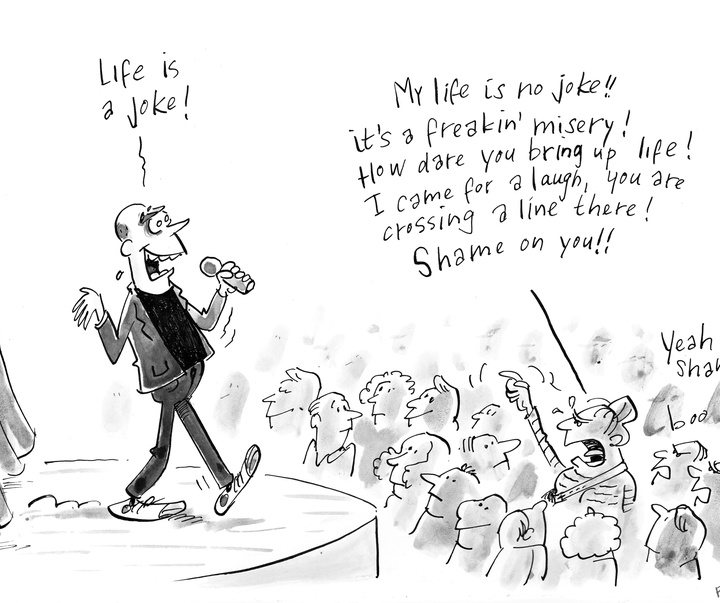 Life is
a joke!
My life is no joke!!
it's a freakin' misery!
How dare you bring up life!
I came for a laugh, you are
crossing a line there!
Shame on you!!
Yeah
boo